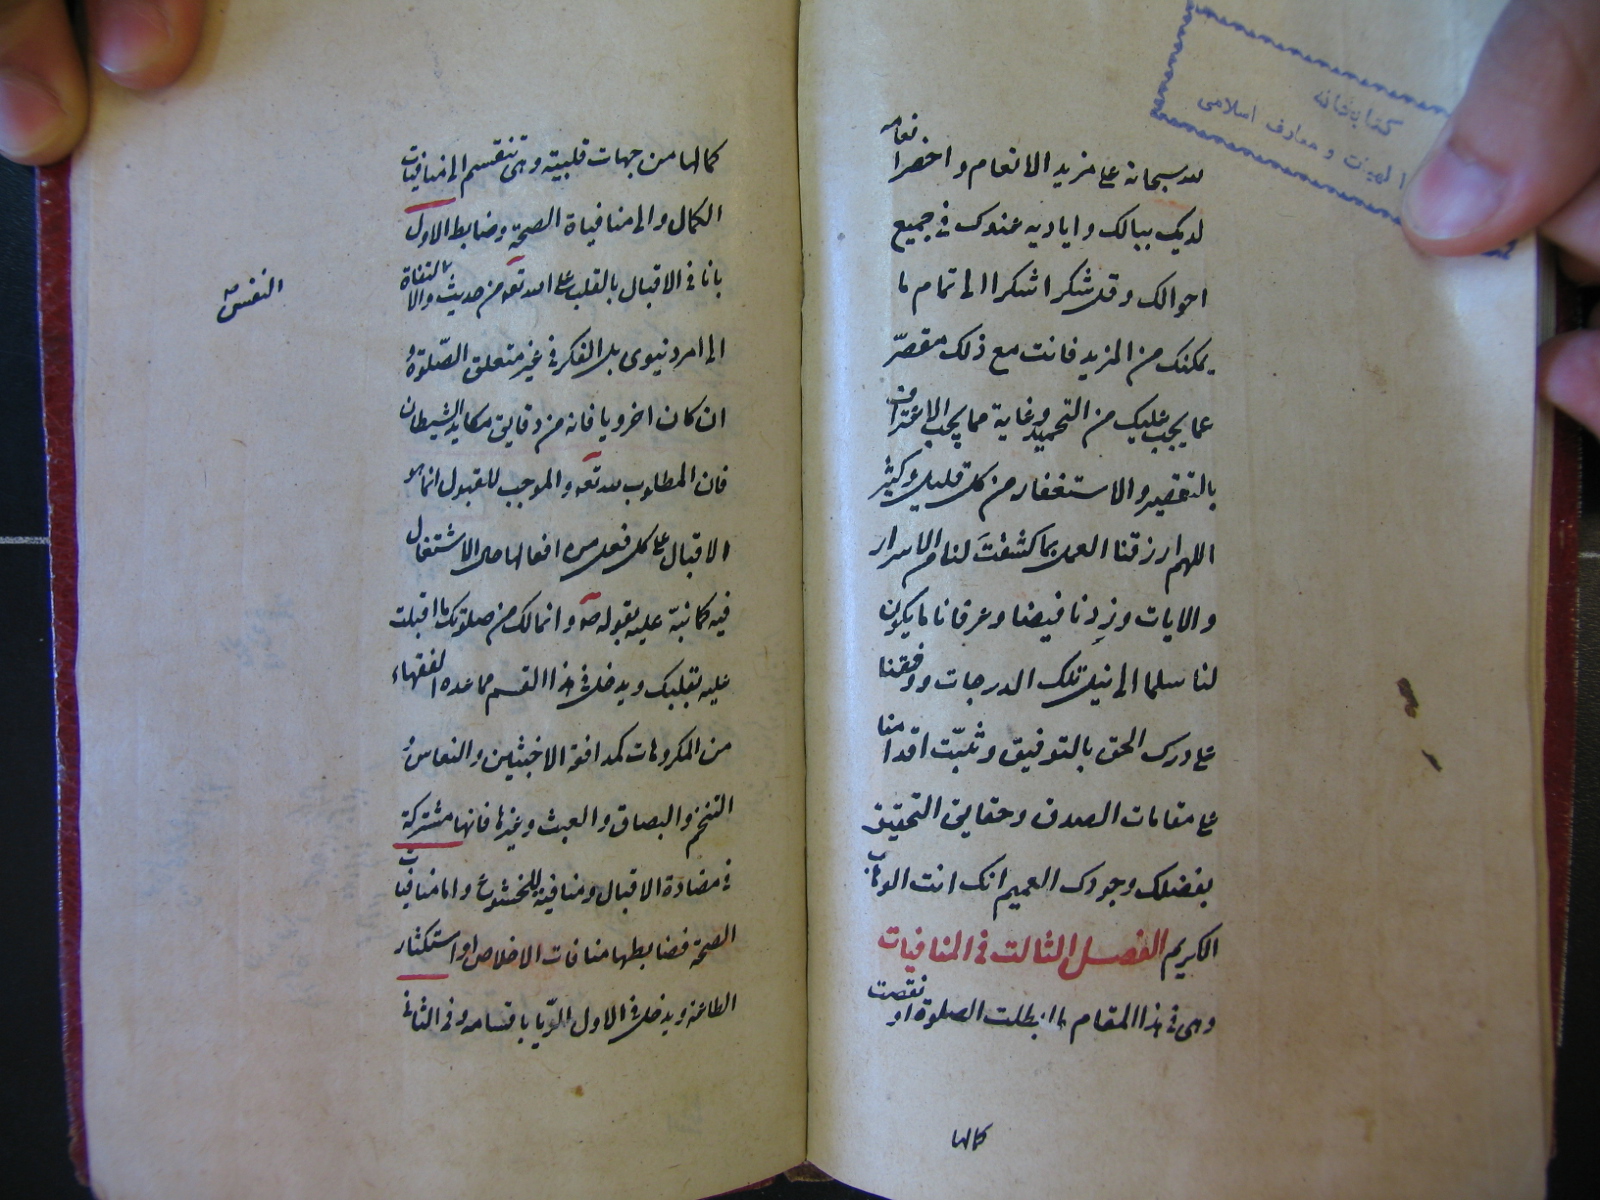 كتابخانه
الهيات و معارف اسلامى
لله سبحانه على مزيد الانعام واحضر انعامه
لديك ببالك واياديه عندك فى جميع
احوالك وقل شكرا شكرا الى تمام ما
يمكنك من المزيد فانت مع ذلك مقصّر
عما يجب عليك من التحميد وغاية مما يجب الاعتراف
بالتقصير والاستغفار من كل قليل وكثير
اللهم ارزقنا العمل بما كشفتَ لنا من الاسرار
والايات وزِدنا فيضا وعرفانا ما يكون
لنا سلما الى نيل تلك الدرجات ووفقنا
على درك الحق بالتوفيق وثبّت اقدامنا
على مقامات الصدق وحقايق التحقيق
بفضلك وجودك العميم انك انت الوهاب
الكريم الفصل الثالث فى المنافيات
وهى فى هذا المقام ما ابطلت الصلوة او نقصت
كمالها
كمالها من جهات قلبية وهى تنقسم الى منافيات
الكمال والى منافياة الصحة وضابط الاول
بانا فى الاقبال بالقلب على الله تعه من حديث والالتفاة
النفس
الى امر دنيوى بل الفكر فى غير متعلق الصّلوة و
ان كان اخرويا فانه من دقايق مكايد الشيطان
فان المطلوب لله تعه والموجب للقبول انما هو
الاقبال على كل فعل من افعالها حال الاشتغال
فيه كما نبّه عليه بقوله صه وانما لك من صلوتك ما اقبلت
عليه بقلبك ويدخل فى هذا القسم مما عده الفقهاء
من المكروهات كمدافعة الاخبثين والنعاس و
التنخم والبصاق والعبث وغيرها فانها مشتركة
فى مضادة الاقبال ومنافية للخشوع واما منافيات
الصحة فضابطها منافات الاخلاص او استكثار
الطاعة ويدخل فى الاول الريّا باقسامه وفى الثانى